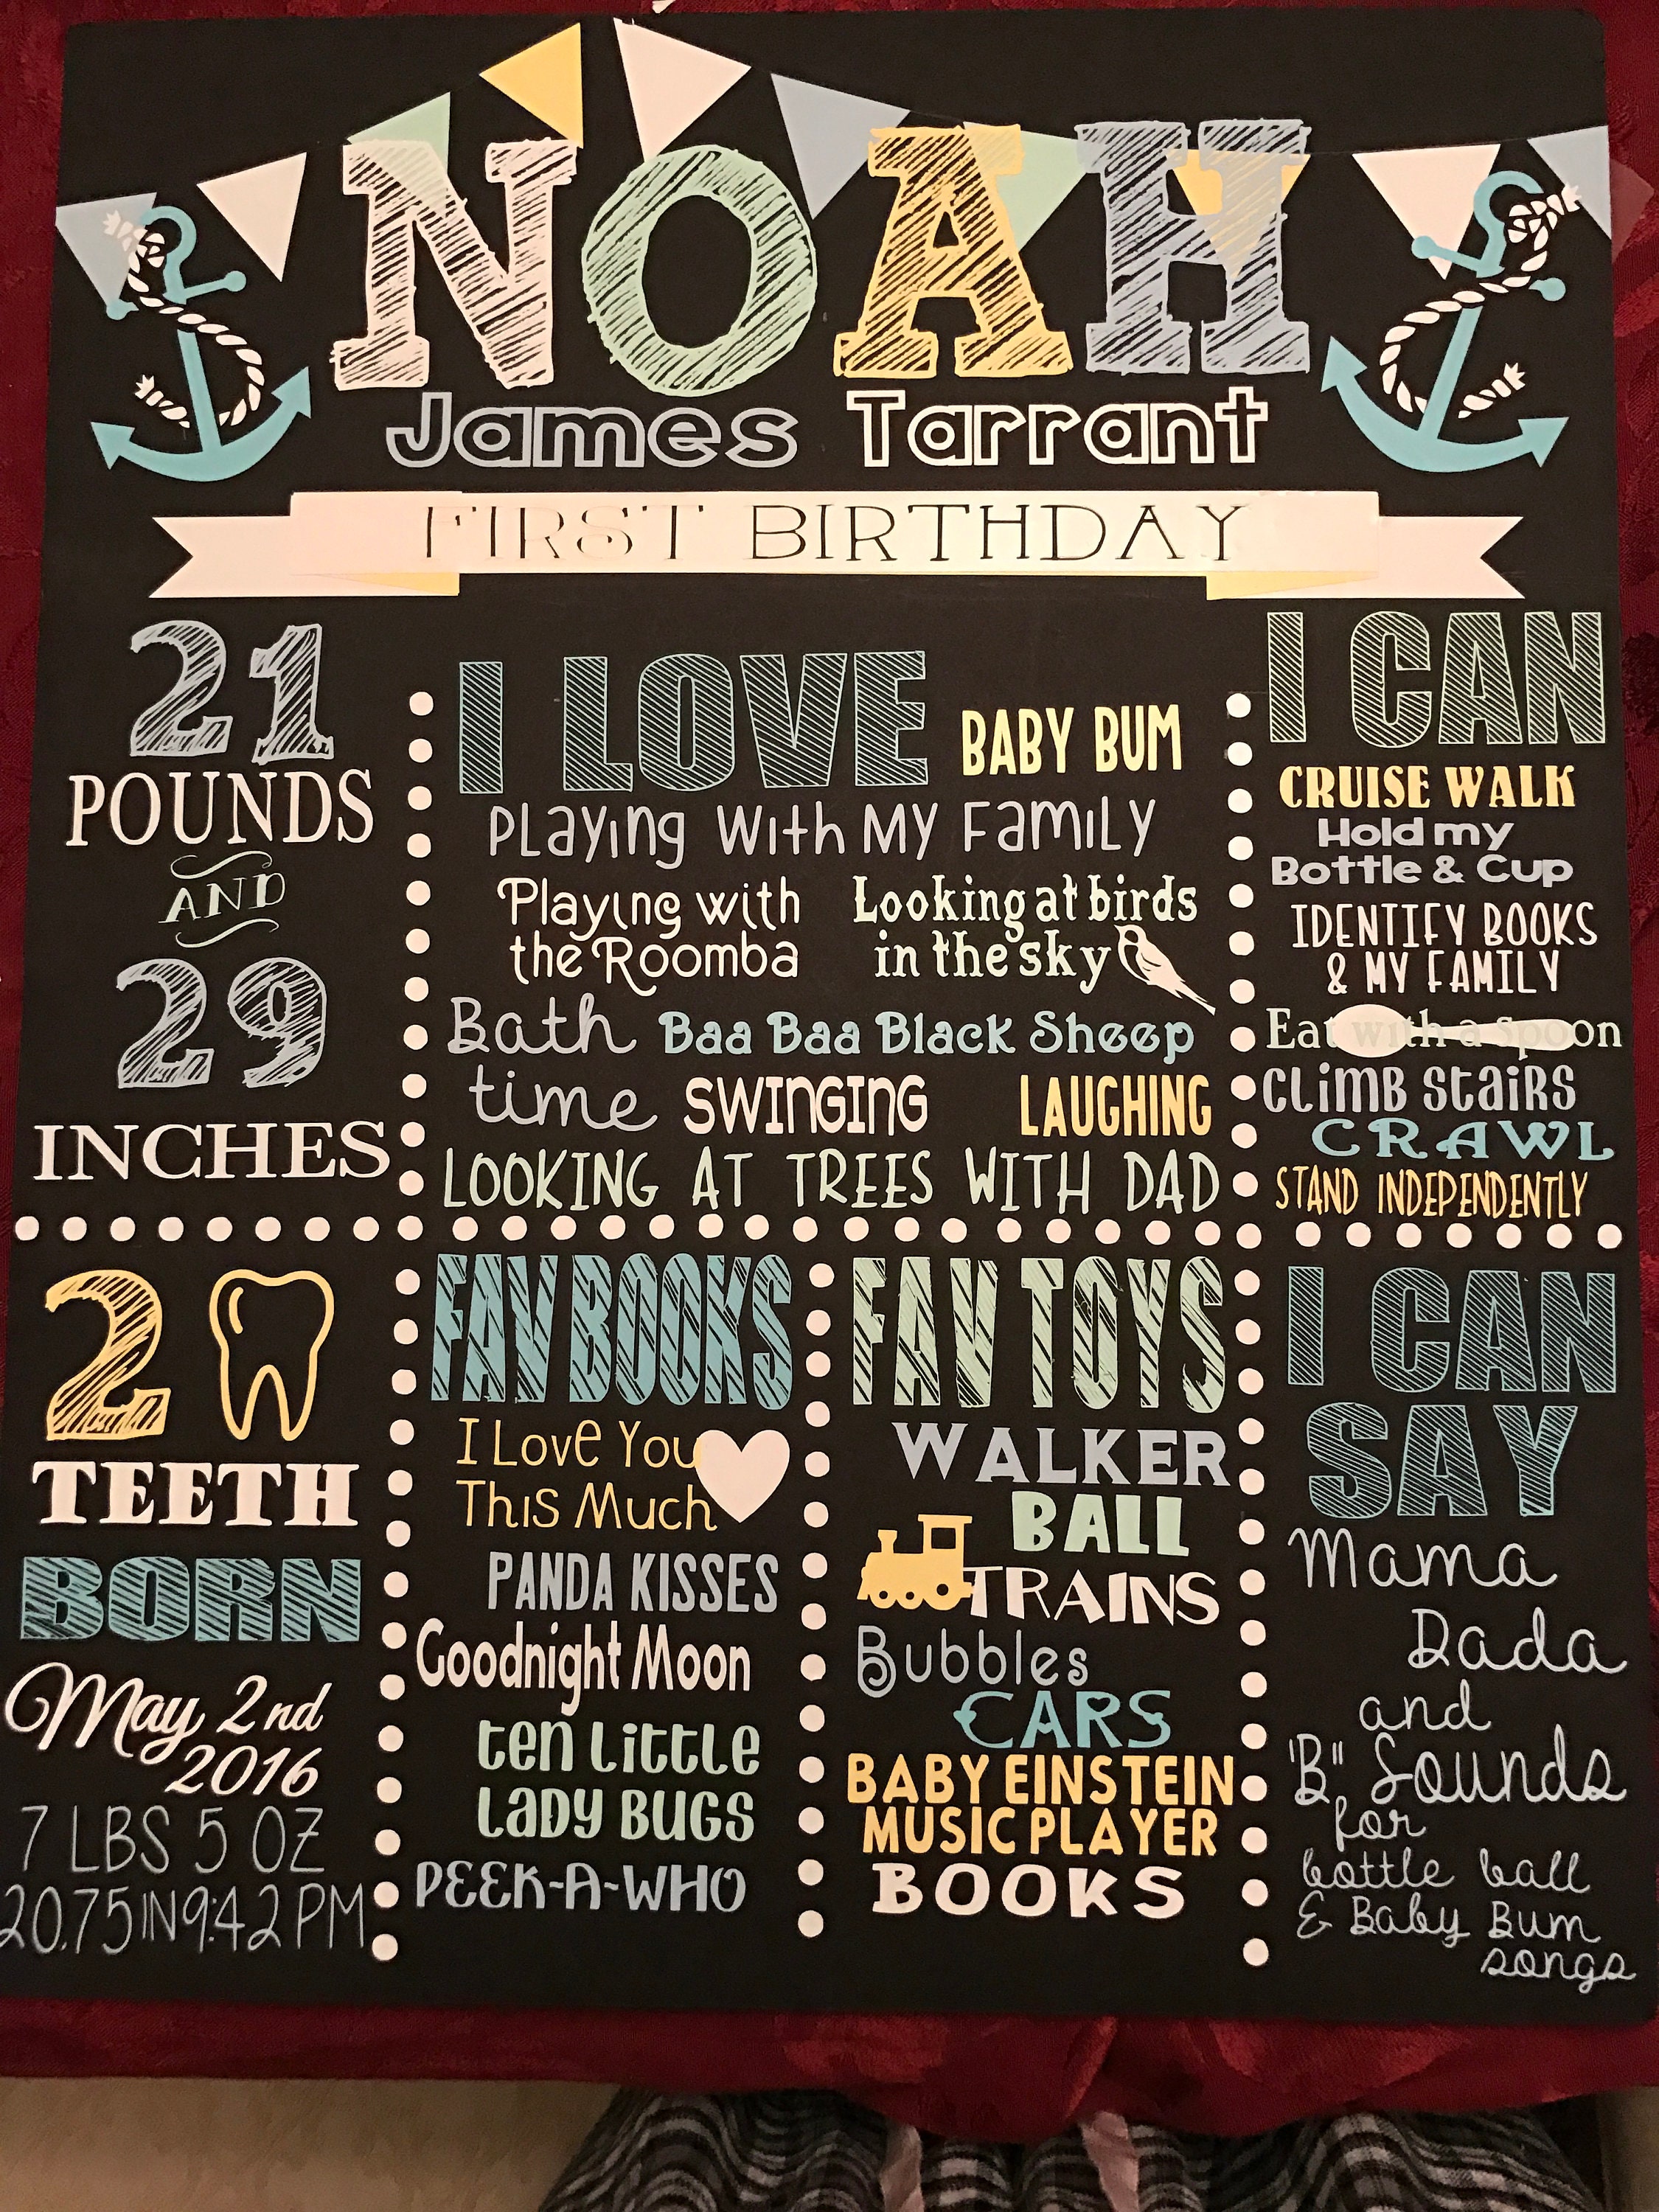 NOAH
James Tarrant
FIRST BIRTHDAY
21
POUNDS
AND
29
INCHES
I LOVE BABY BUM
Playing With My Family
Playing with
the Roomba
Looking at birds
in the sky
Bath
time
Baa Baa Black Sheep
SWINGING LAUGHING
LOOKING AT TREES WITH DAD
I CAN
CRUISE WALK
Hold my
Bottle & Cup
IDENTIFY BOOKS
& MY FAMILY
Eat with a spoon
climb stairs
CRAWL
STAND INDEPENDENTLY
2
TEETH
BORN
May 2nd
2016
7 LBS 5 OZ
20.75 IN 9:42 PM
FAV BOOKS
I Love You
This Much
PANDA KISSES
Goodnight Moon
ten little
Lady BUGS
PEEK-A-WHO
FAV TOYS
WALKER
BALL
TRAINS
Bubbles
CARS
BABY EINSTEIN
MUSIC PLAYER
BOOKS
I CAN
SAY
Mama
Dada
and
"B" Sounds
for
bottle ball
& Baby Bum
songs